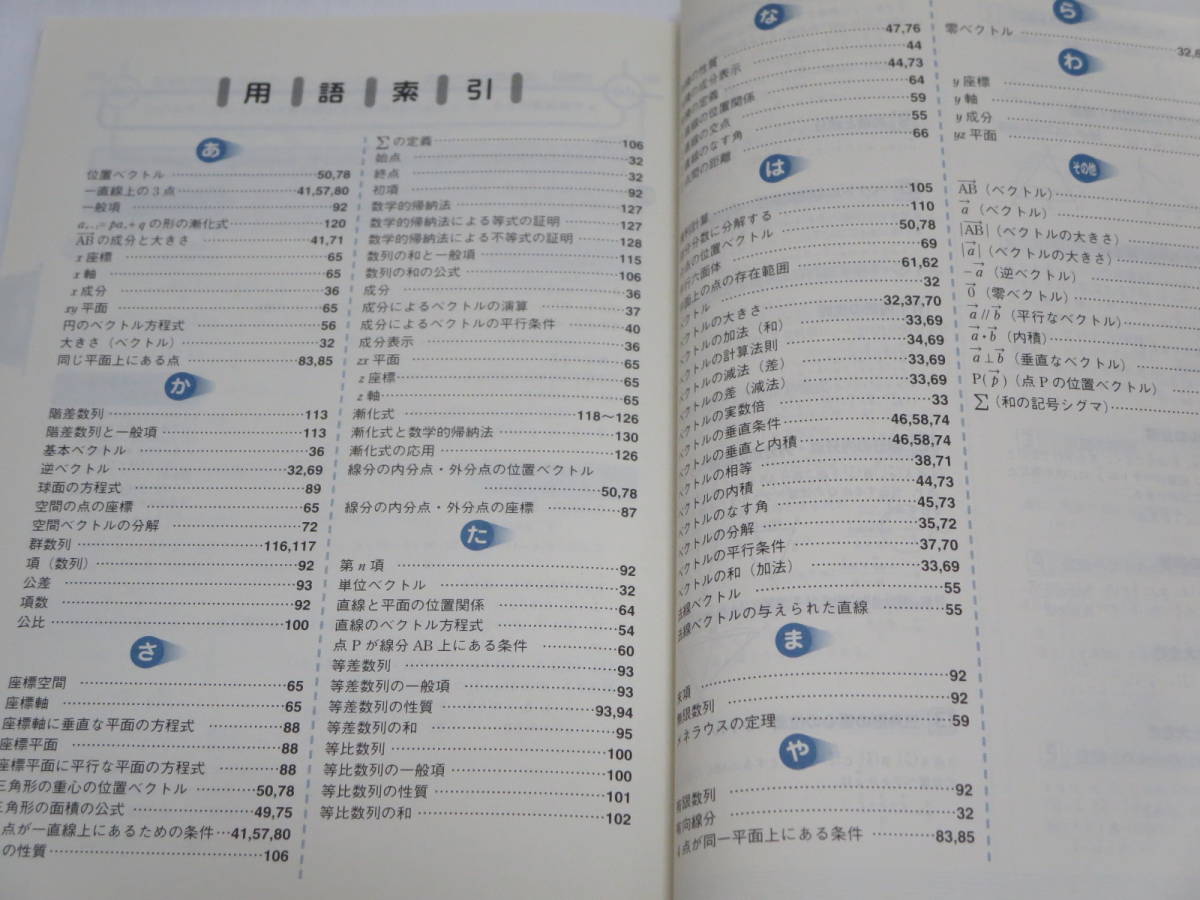 用語索引
あ
位置ベクトル 50,78
一直線上の3点 41,57,80
一般項 92
aₙ₊₁=paₙ+q の形の漸化式 120
ABの成分と大きさ 41,71
x座標 65
x軸 65
x成分 36
xy平面 65
円のベクトル方程式 56
大きさ（ベクトル） 32
同じ平面上にある点 83,85
か
階差数列 113
階差数列と一般項 113
基本ベクトル 36
逆ベクトル 32,69
球面の方程式 89
空間の点の座標 65
空間ベクトルの分解 72
群数列 116,117
項（数列） 92
公差 93
項数 92
公比 100
さ
座標空間 65
座標軸 65
座標軸に垂直な平面の方程式 88
座標平面 88
座標平面に平行な平面の方程式 88
三角形の重心の位置ベクトル 50,78
三角形の面積の公式 49,75
点が一直線上にあるための条件 41,57,80
の性質 106
Σの定義 106
始点 32
終点 32
初項 92
数学的帰納法 127
数学的帰納法による等式の証明 127
数学的帰納法による不等式の証明 128
数列の和と一般項 115
数列の和の公式 106
成分 36
成分によるベクトルの演算 37
成分によるベクトルの平行条件 40
成分表示 36
zx平面 65
z座標 65
z軸 65
漸化式 118〜126
漸化式と数学的帰納法 130
漸化式の応用 126
線分の内分点・外分点の位置ベクトル
50,78
線分の内分点・外分点の座標 87
た
第n項 92
単位ベクトル 32
直線と平面の位置関係 64
直線のベクトル方程式 54
点Pが線分AB上にある条件 60
等差数列 93
等差数列の一般項 93
等差数列の性質 93,94
等差数列の和 95
等比数列 100
等比数列の一般項 100
等比数列の性質 101
等比数列の和 102
な
の性質 47,76
の成分表示 44
の定義 44,73
直線の位置関係 64
直線の交点 59
直線のなす角 55
点間の距離 66
は
計算 105
分数に分解する 110
点の位置ベクトル 50,78
行六面体 69
面上の点の存在範囲 61,62
ベクトル 32
ベクトルの大きさ 32,37,70
ベクトルの加法（和） 33,69
ベクトルの計算法則 34,69
ベクトルの減法（差） 33,69
ベクトルの差（減法） 33,69
ベクトルの実数倍 33
ベクトルの垂直条件 46,58,74
ベクトルの垂直と内積 46,58,74
ベクトルの相等 38,71
ベクトルの内積 44,73
ベクトルのなす角 45,73
ベクトルの分解 35,72
ベクトルの平行条件 37,70
ベクトルの和（加法） 33,69
法線ベクトル 55
法線ベクトルの与えられた直線 55
ま
末項 92
無限数列 92
メネラウスの定理 59
や
有限数列 92
有向線分 32
4点が同一平面上にある条件 83,85
ら
零ベクトル 32,6
わ
y座標
y軸
y成分
yz平面
その他
AB（ベクトル）
a（ベクトル）
|AB|（ベクトルの大きさ）
|a|（ベクトルの大きさ）
−a（逆ベクトル）
0（零ベクトル）
a//b（平行なベクトル）
a・b（内積）
a⊥b（垂直なベクトル）
P(p)（点Pの位置ベクトル）
Σ（和の記号シグマ）